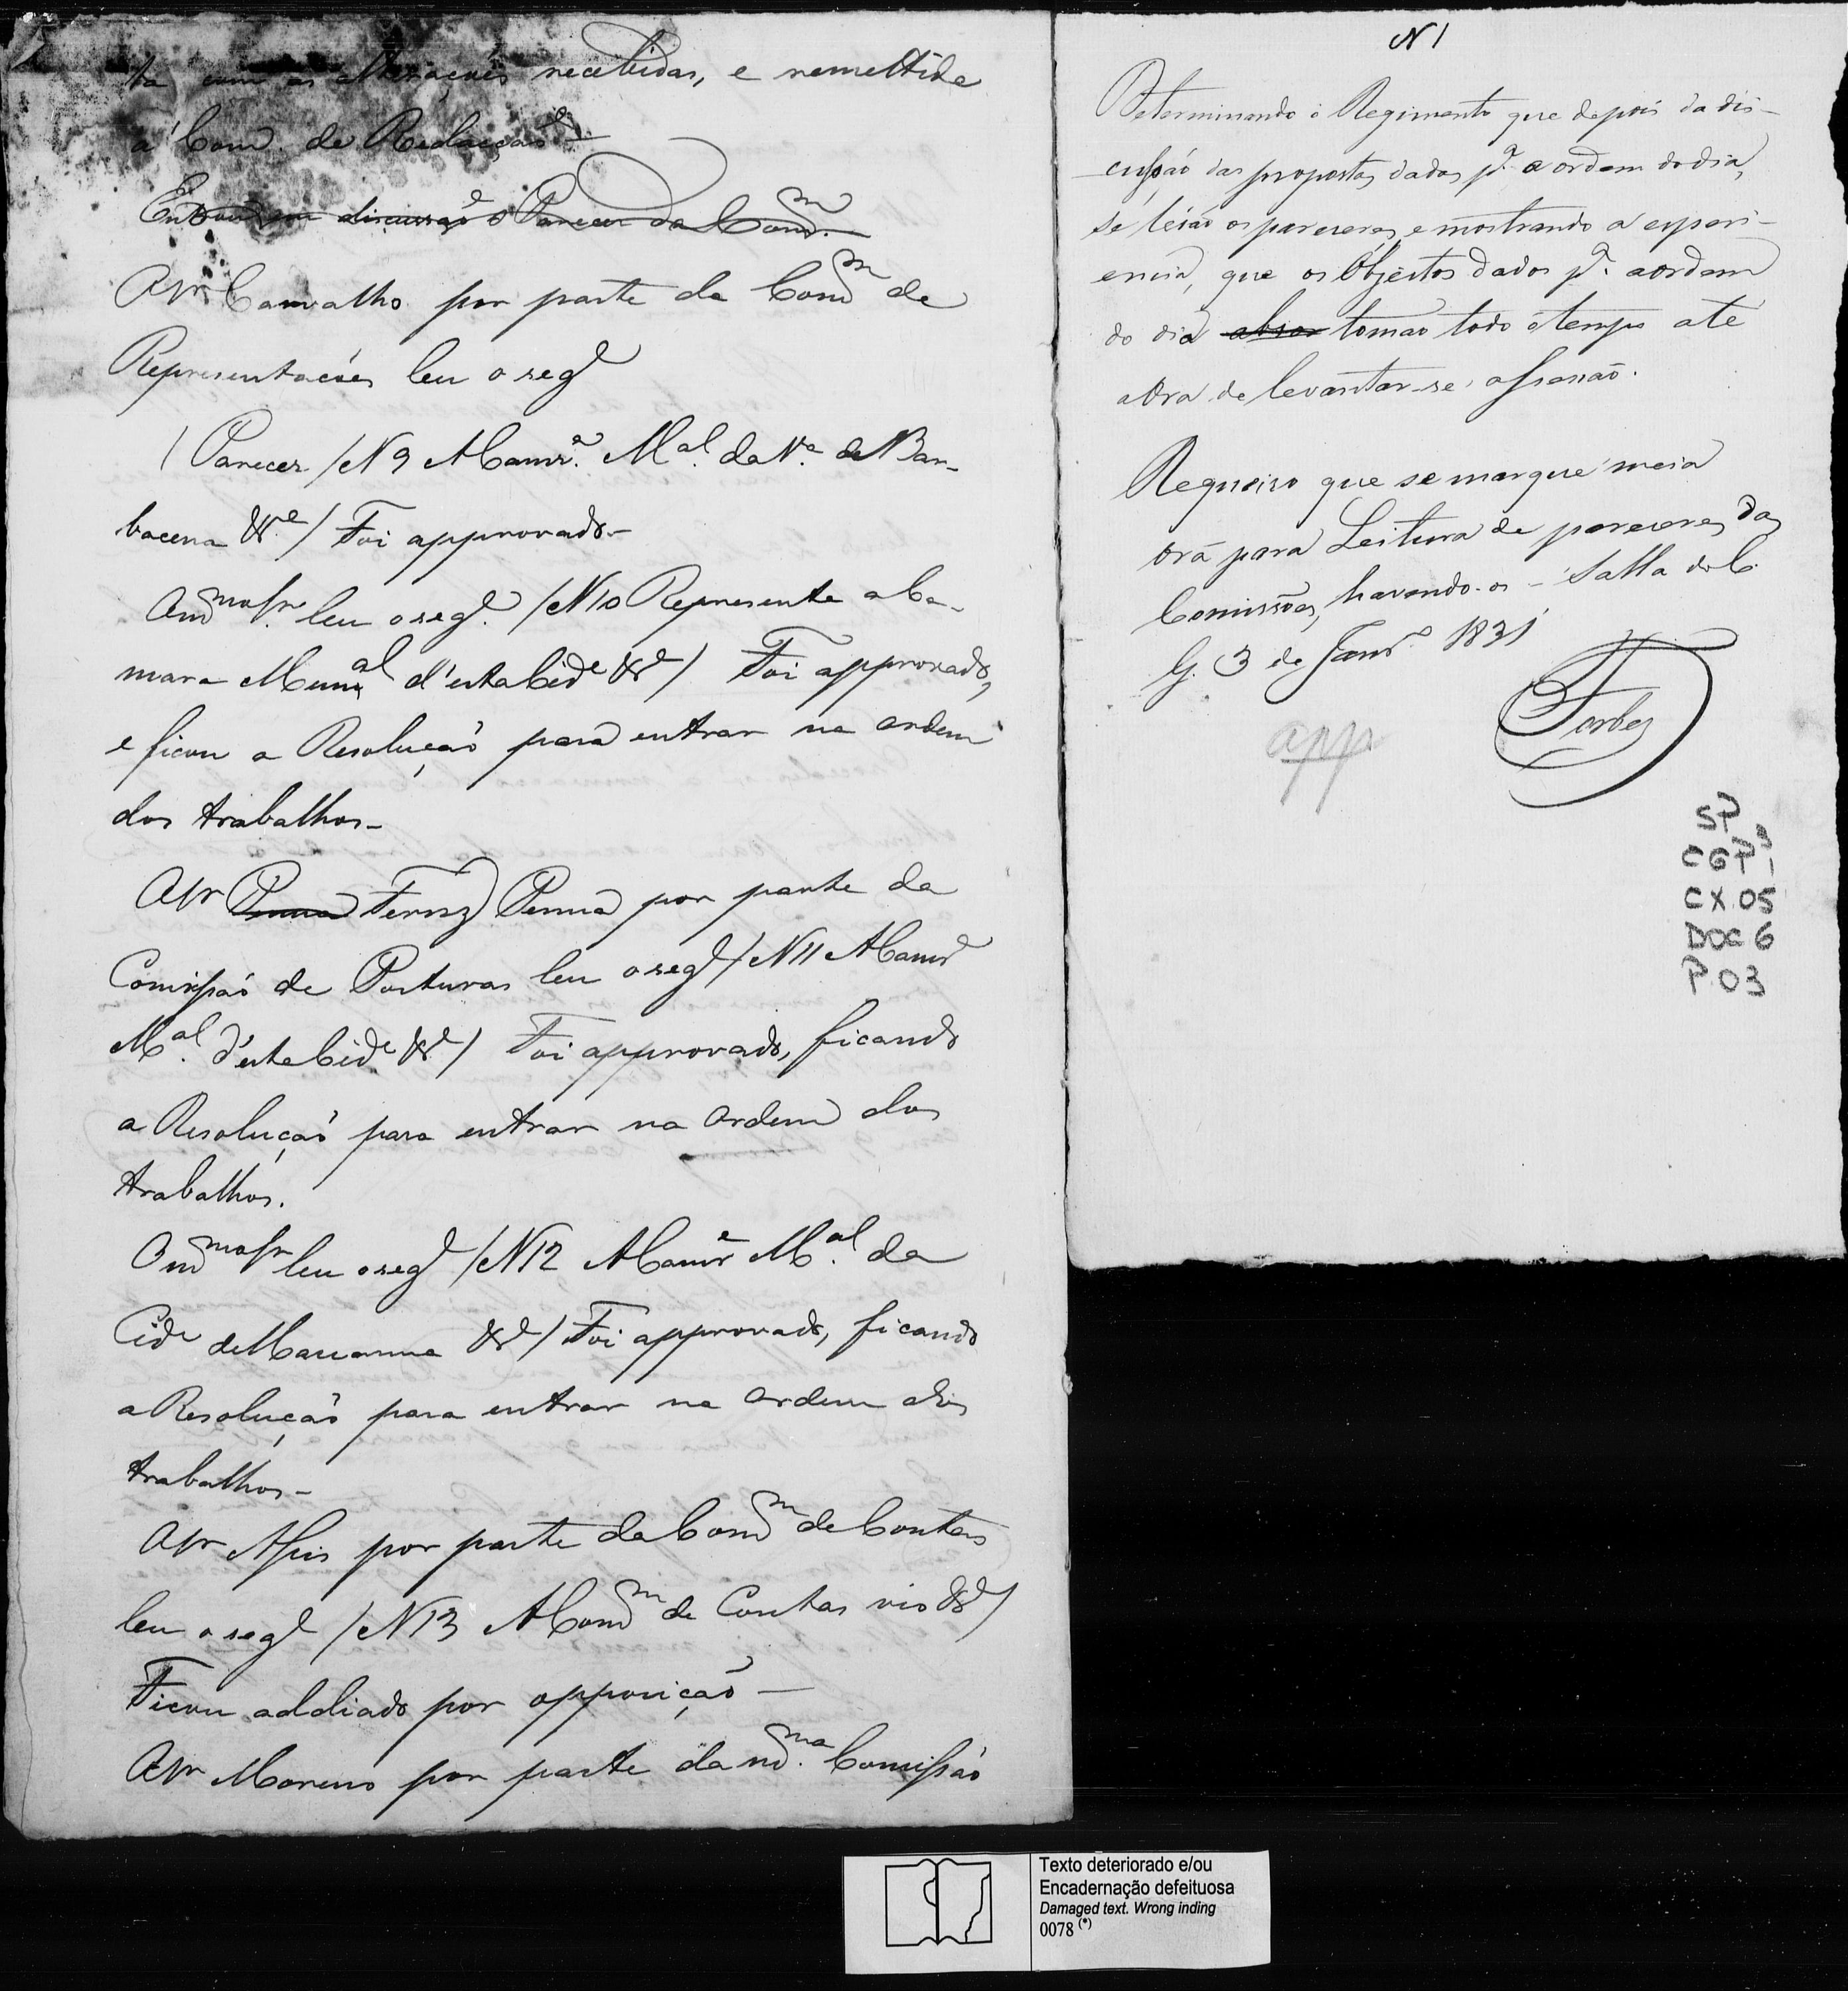 ta com as alterações recebidas, e remettida
á Com. de Redacção
Entrou em discussão o Parecer da Comm.
O Sr Carvalho por parte da Comm de
Representações leu o seg.e
(Parecer /N 9 A Camr.a M.al da V.a de Bar-
bacena &.e/ Foi approvado-
O m.mo Sr. leu o seg.e /N 10 Representa a Ca-
mara Mun.al d'esta Cid.e &.e/ Foi approvado,
e ficou a Resolução para entrar na ordem
dos trabalhos-
O Sr Penna Fernz Penna por parte da
Comissão de Posturas leu o seg.e /N 11 A Camr.a
M.al d'esta Cid.e &.e/ Foi approvado, ficando
a Resolução para entrar na ordem dos
trabalhos.
O m.mo Sr leu o seg.e /N 12 A Camr.a M.al da
Cid.e de Marianna &.e/ Foi approvado, ficando
a Resolução para entrar na ordem dos
trabalhos-
O Sr Assis por parte da Comm de Contas
leu o seg.e /N 13 A Comm de Contas vio &.e/
Ficou addiado por opposição-
O Sr Moreno por parte da m.ma Comissão
N 1
Determinando o Regimento que depois da dis-
cussão das propostas dadas p.a a ordem do dia,
se leião os pareceres, e mostrando a experi-
encia, que os Objectos dados p.a a ordem
do dia tomão todo o tempo até
a ora de levantar-se a sessão.
Requeiro que se marque meia
ora para Leitura de pareceres das
Comissões, havendo-os - Salla do C.
G. 3 de Janr.o 1831
Jorbes
app
SP
CGP 1
CX. 05
DOC 6
P. 03
Texto deteriorado e/ou
Encadernação defeituosa
Damaged text. Wrong inding
0078 (*)